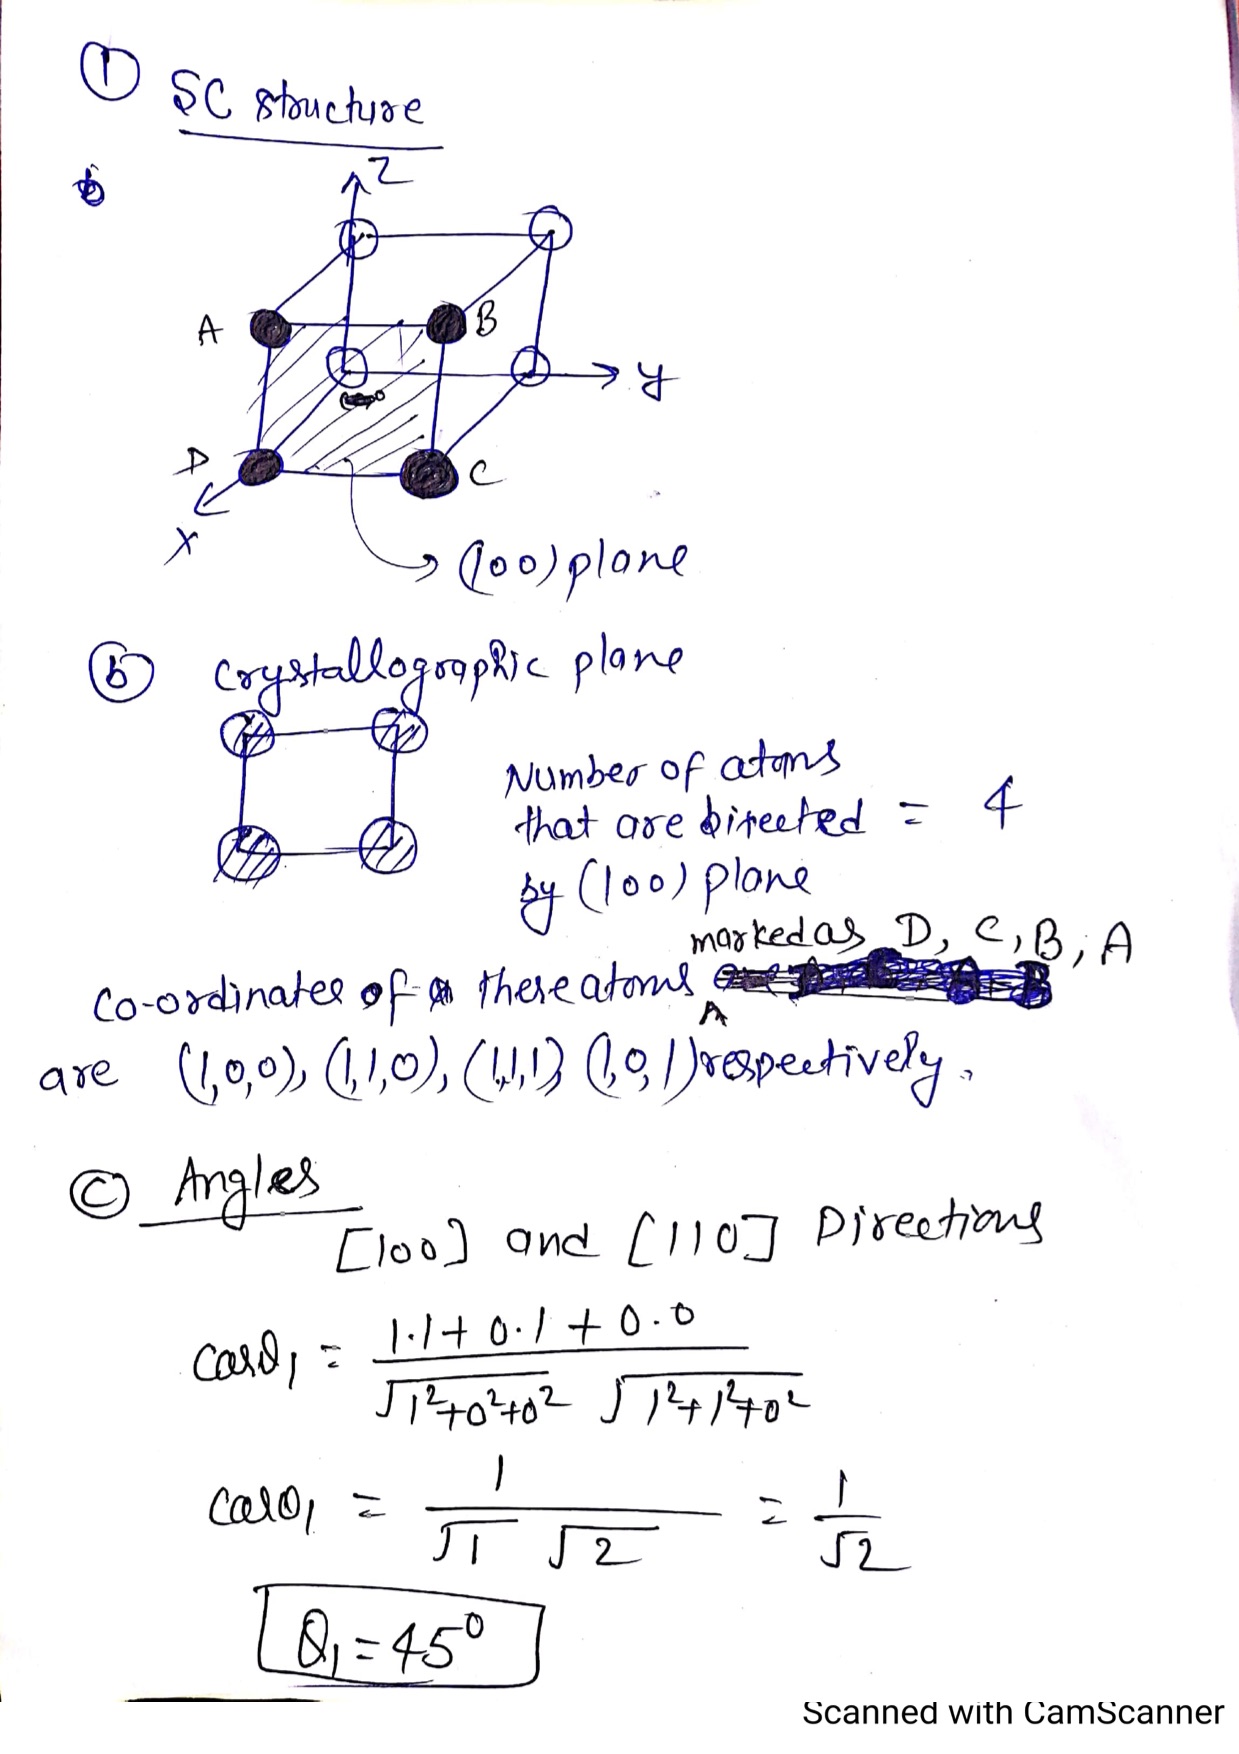 ① SC structure
Z
A
B
y
D
C
X
(100) plane
ⓑ Crystallographic plane
Number of atoms
that are bisected = 4
by (100) plane
marked as D, C, B, A
Co-ordinates of these atoms
A
are (1,0,0), (1,1,0), (1,1,1), (1,0,1) respectively.
ⓒ Angles
[100] and [110] Directions
cosθ₁ = 1.1 + 0.1 + 0.0
√1²+0²+0² √1²+1²+0²
cosθ₁ = 1 = 1
√1 √2 √2
θ₁ = 45⁰
Scanned with CamScanner